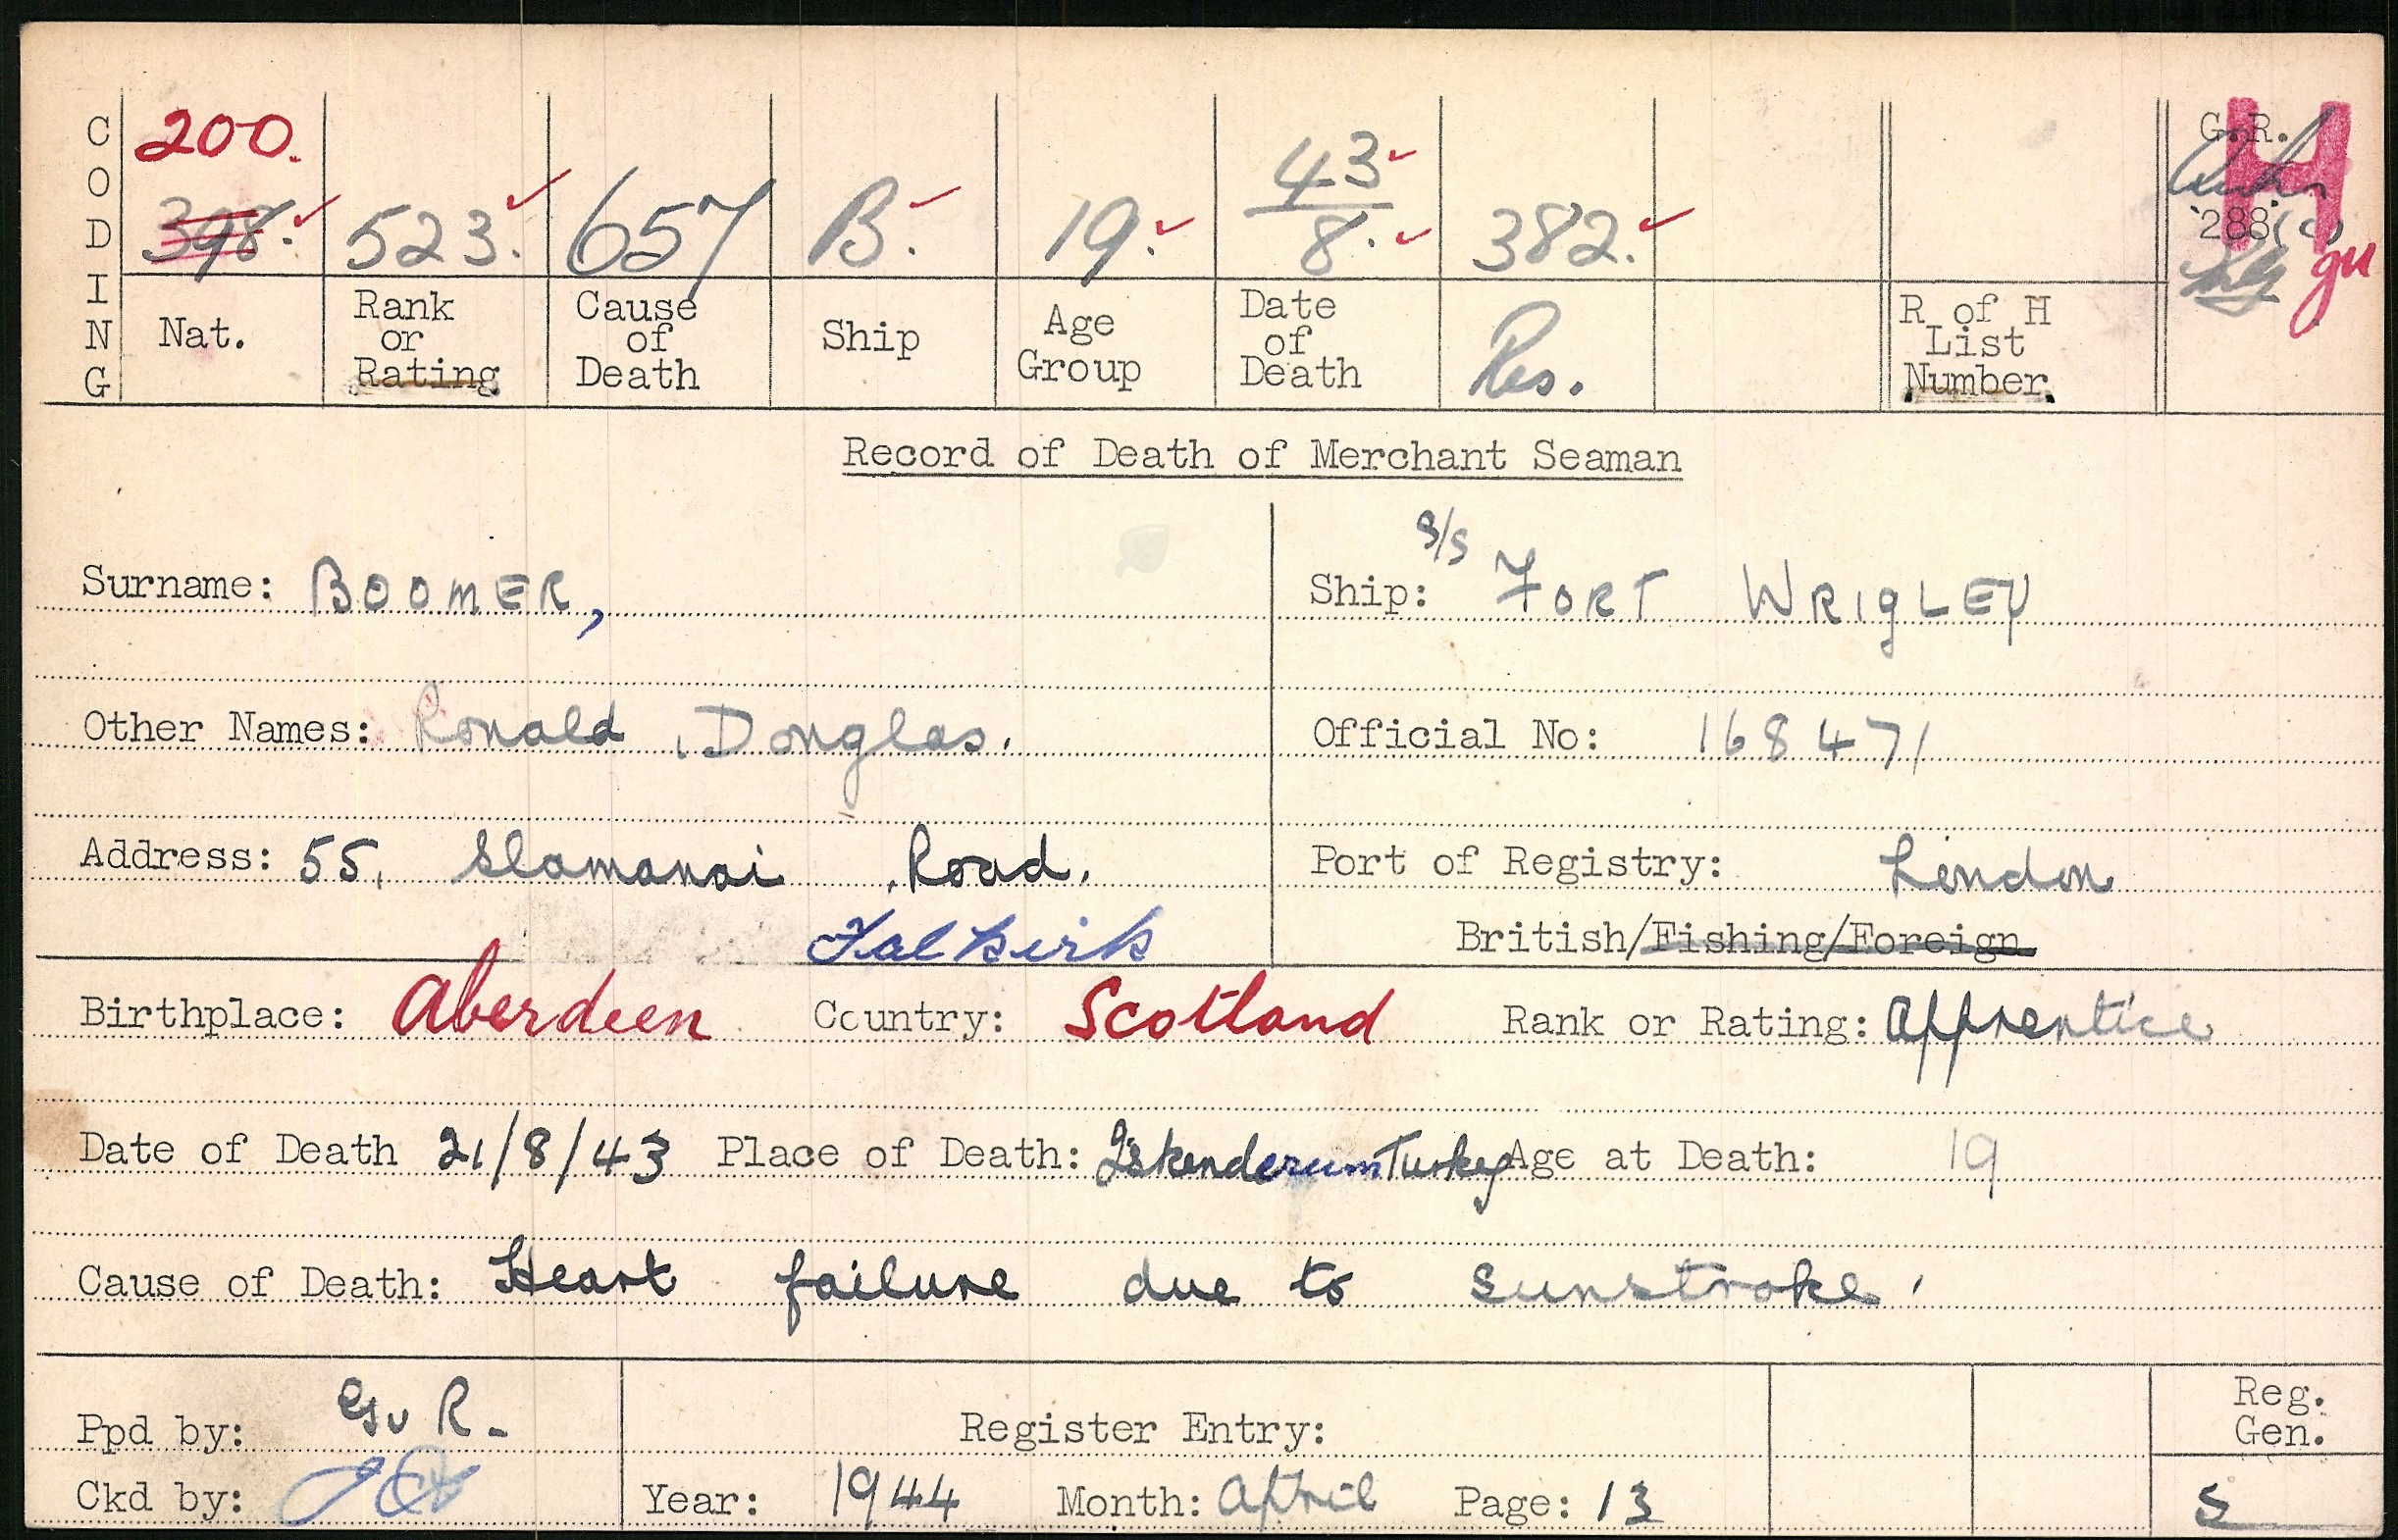 CODING
200.
398. 523. 657 B. 19. 43/8. 382.
G.R.
288(c)
H
gu
Nat. Rank or Rating Cause of Death Ship Age Group Date of Death Res. R of H List Number
Record of Death of Merchant Seaman
Surname: BOOMER,
s/s
Ship: FORT WRIGLEY
Other Names: Ronald Douglas.
Official No: 168471
Address: 55, Slamanai Road.
Falkirk
Port of Registry: London
British/Fishing/Foreign
Birthplace: Aberdeen Country: Scotland Rank or Rating: Apprentice
Date of Death 21/8/43 Place of Death: Iskenderum Turkey Age at Death: 19
Cause of Death: Heart failure due to sunstroke.
Ppd by: GvR.
Register Entry:
Reg. Gen.
Ckd by:
Year: 1944 Month: April Page: 13
5